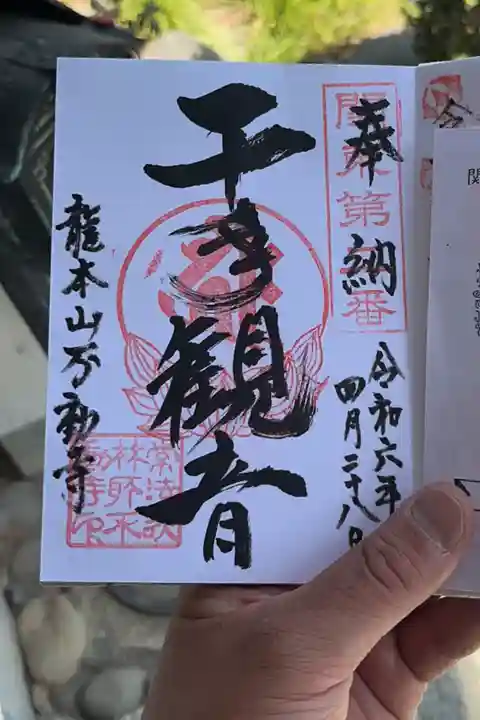 奉納
関東第二番
令和六年
四月二十八日
千手観音
龍本山不動寺
常法談
林所不
動寺印